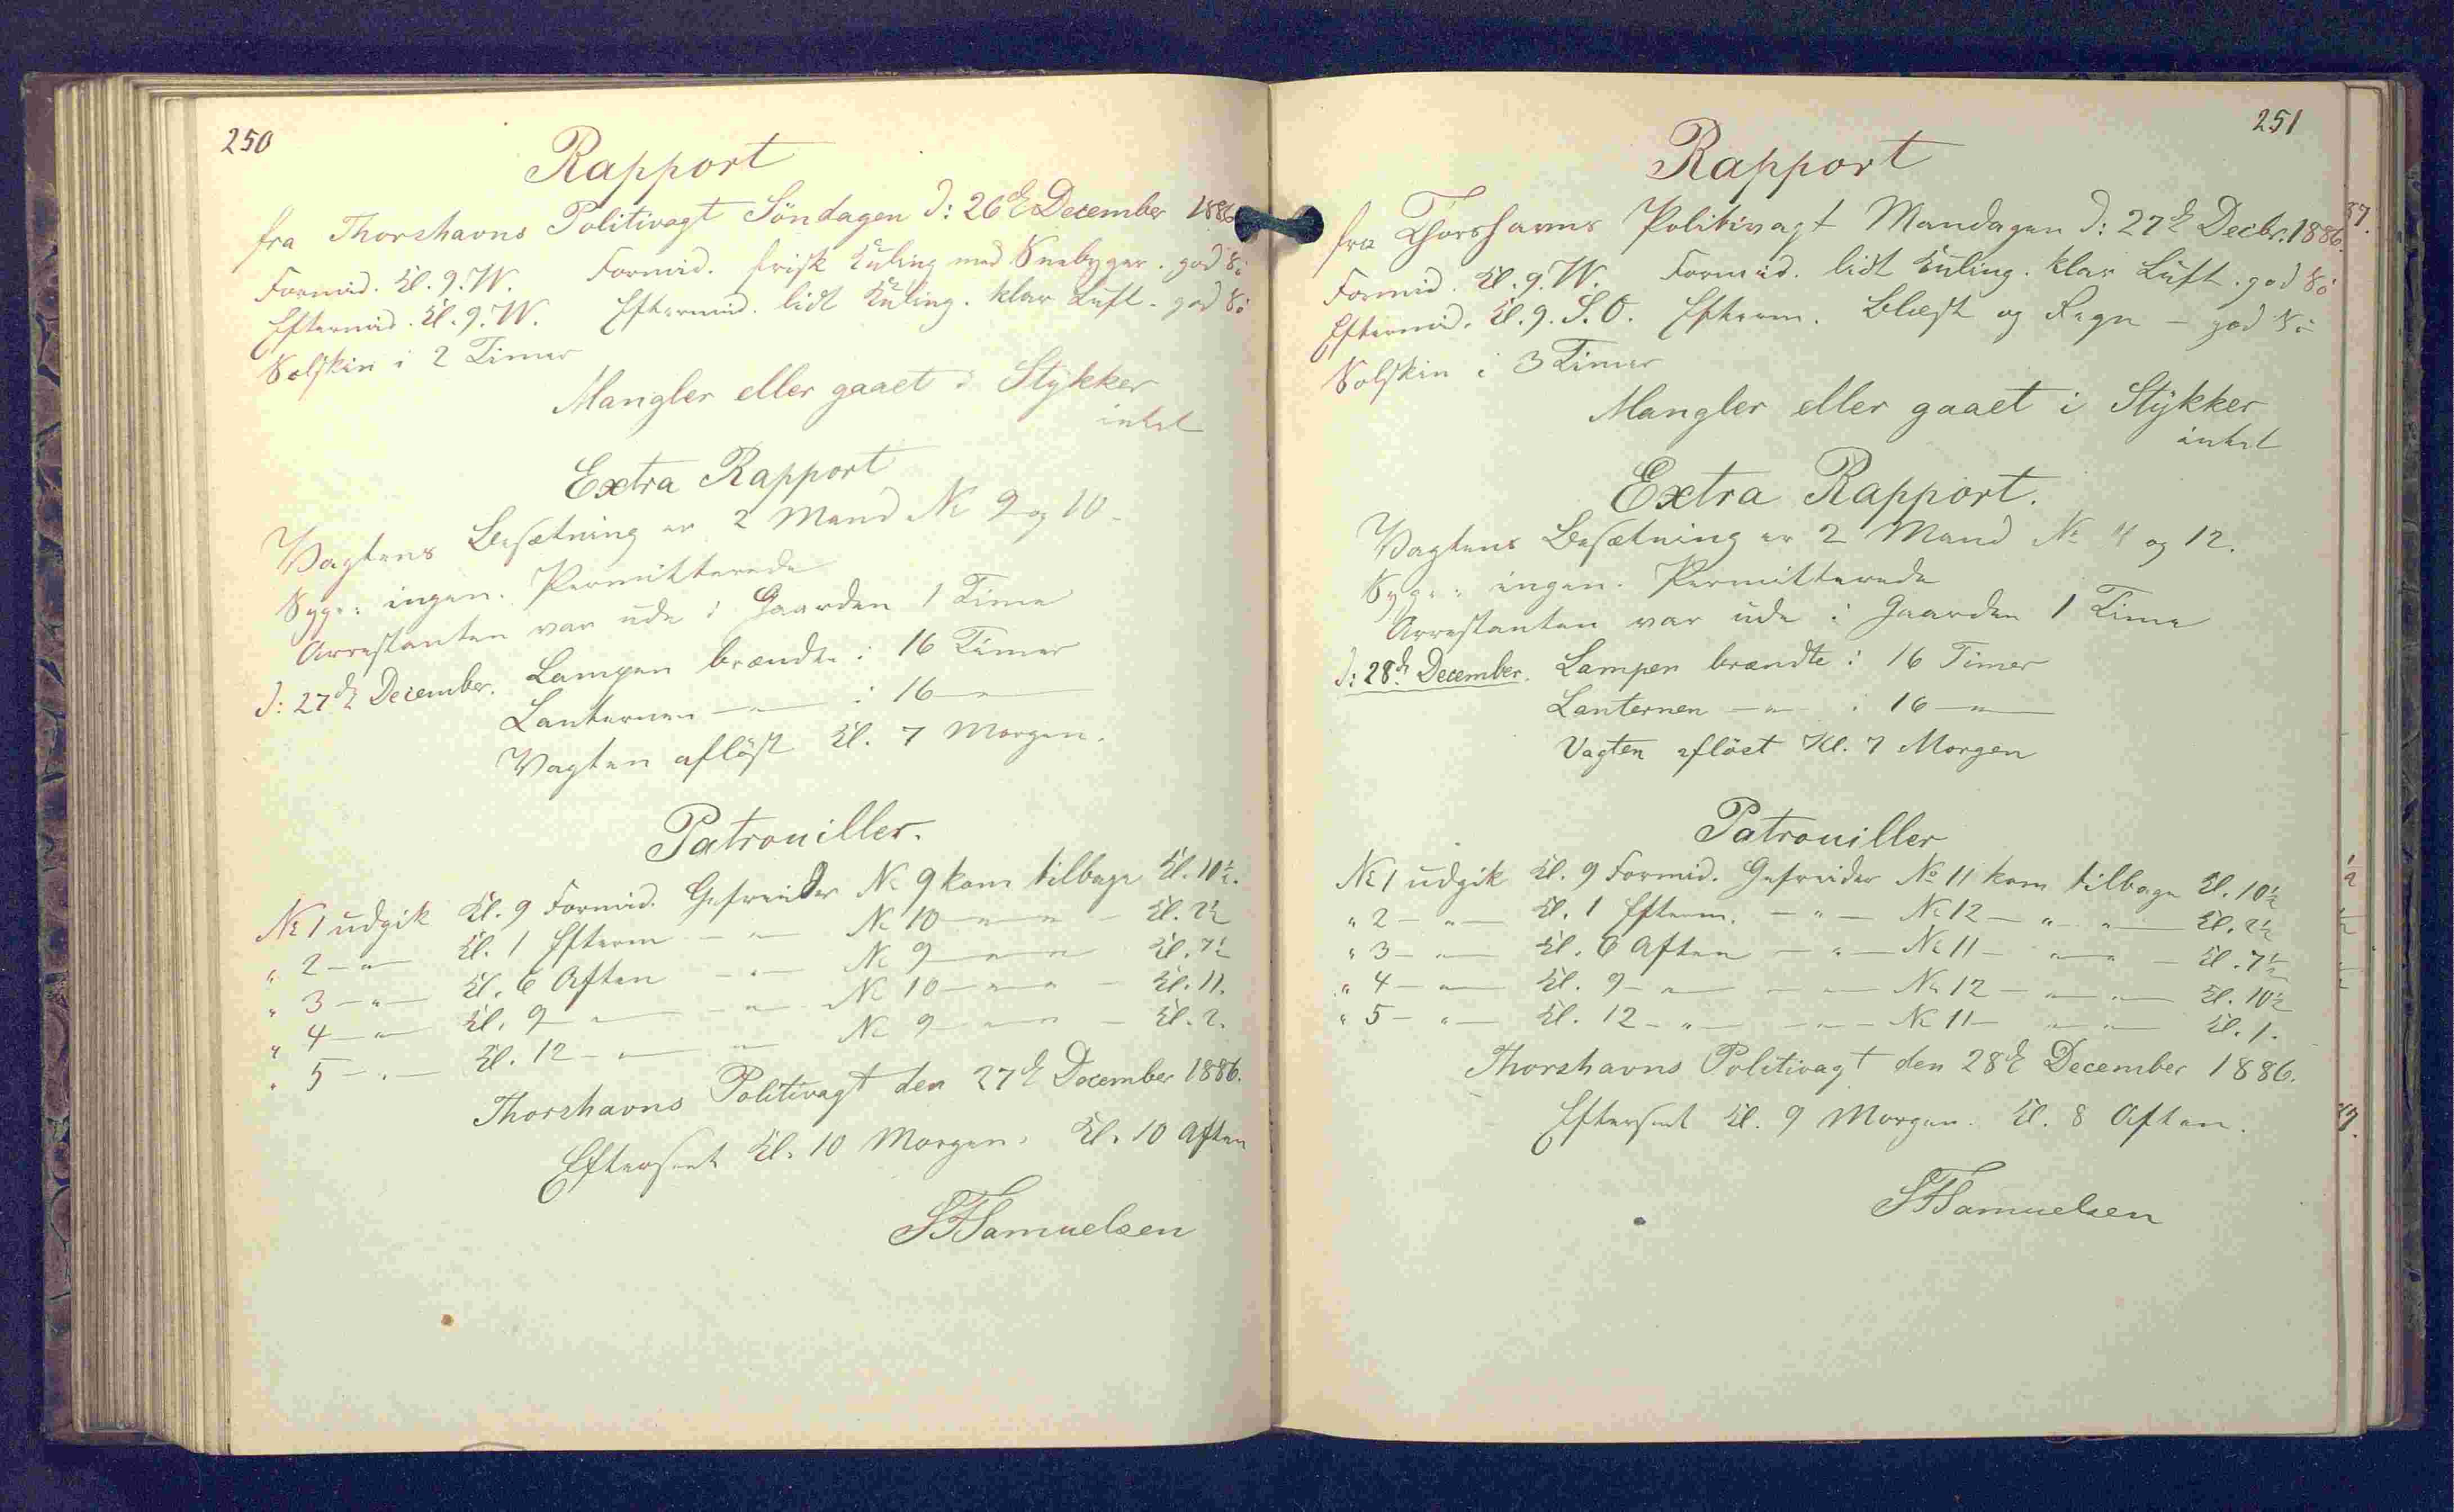 250
Rapport
fra Thorshavns Politivagt Söndagen d: 26de December 1886
Formid. Kl. 9. W. Formid. frisk Kuling med Snebyger. god Sö
Eftermid. Kl. 9. W. Eftermid. lidt Kuling. klar Luft. god Sö
Solskin i 2 Timer
Mangler eller gaaet i Stykker
intet
Extra Rapport
Vagtens Besætning er 2 Mand No 9 og 10.
Syge: ingen. Permitterede
Arrestanten var ude i Gaarden 1 Time
d: 27de December. Lampen brændte i 16 Timer
Lanternen — " — i 16 — " —
Vagten aflöst Kl. 7 Morgen.
Patrouiller.
No 1 udgik Kl. 9 Formid. Gefreider No 9 kom tilbage Kl. 10½.
" 2 — " — Kl. 1 Efterm — " — No 10 — " — " — Kl. 2½
" 3 — " — Kl. 6 Aften — " — No 9 — " — " — Kl. 7½
" 4 — " — Kl. 9 — " — — " — No 10 — " — " — Kl. 11.
" 5 — " — Kl. 12 — " — — " — No 9 — " — " — Kl. 2.
Thorshavns Politivagt den 27de December 1886.
Efterseet Kl. 10 Morgen. Kl. 10 Aften
Samuelsen
251
Rapport
fra Thorshavns Politivagt Mandagen d: 27de Decbr. 1886.
Formid. Kl. 9. W. Formid. lidt Kuling. klar Luft. god Sö
Eftermid. Kl. 9. S.O. Efterm. Blæst og Regn — god Sö
Solskin i 3 Timer
Mangler eller gaaet i Stykker
intet
Extra Rapport.
Vagtens Besætning er 2 Mand No 11 og 12.
Syge: ingen. Permitterede
Arrestanten var ude i Gaarden 1 Time
d: 28de December. Lampen brændte i 16 Timer
Lanternen — " — i 16 — " —
Vagten aflöst Kl. 7 Morgen
Patrouiller
No 1 udgik Kl. 9 Formid. Gefreider No 11 kom tilbage Kl. 10½
" 2 — " — Kl. 1 Efterm. — " — No 12 — " — " — Kl. 2½
" 3 — " — Kl. 6 Aften — " — No 11 — " — " — Kl. 7½
" 4 — " — Kl. 9 — " — — " — No 12 — " — " — Kl. 10½
" 5 — " — Kl. 12 — " — — " — No 11 — " — " — Kl. 1.
Thorshavns Politivagt den 28de December 1886.
Efterseet Kl. 9 Morgen. Kl. 8 Aften.
Samuelsen